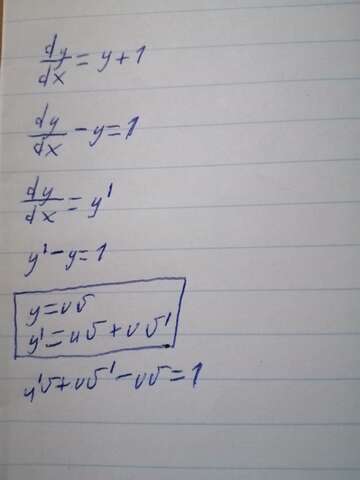 dy/dx = y + 1
dy/dx - y = 1
dy/dx = y'
y' - y = 1
y = uv
y' = uv + uv'
u'v + uv' - uv = 1